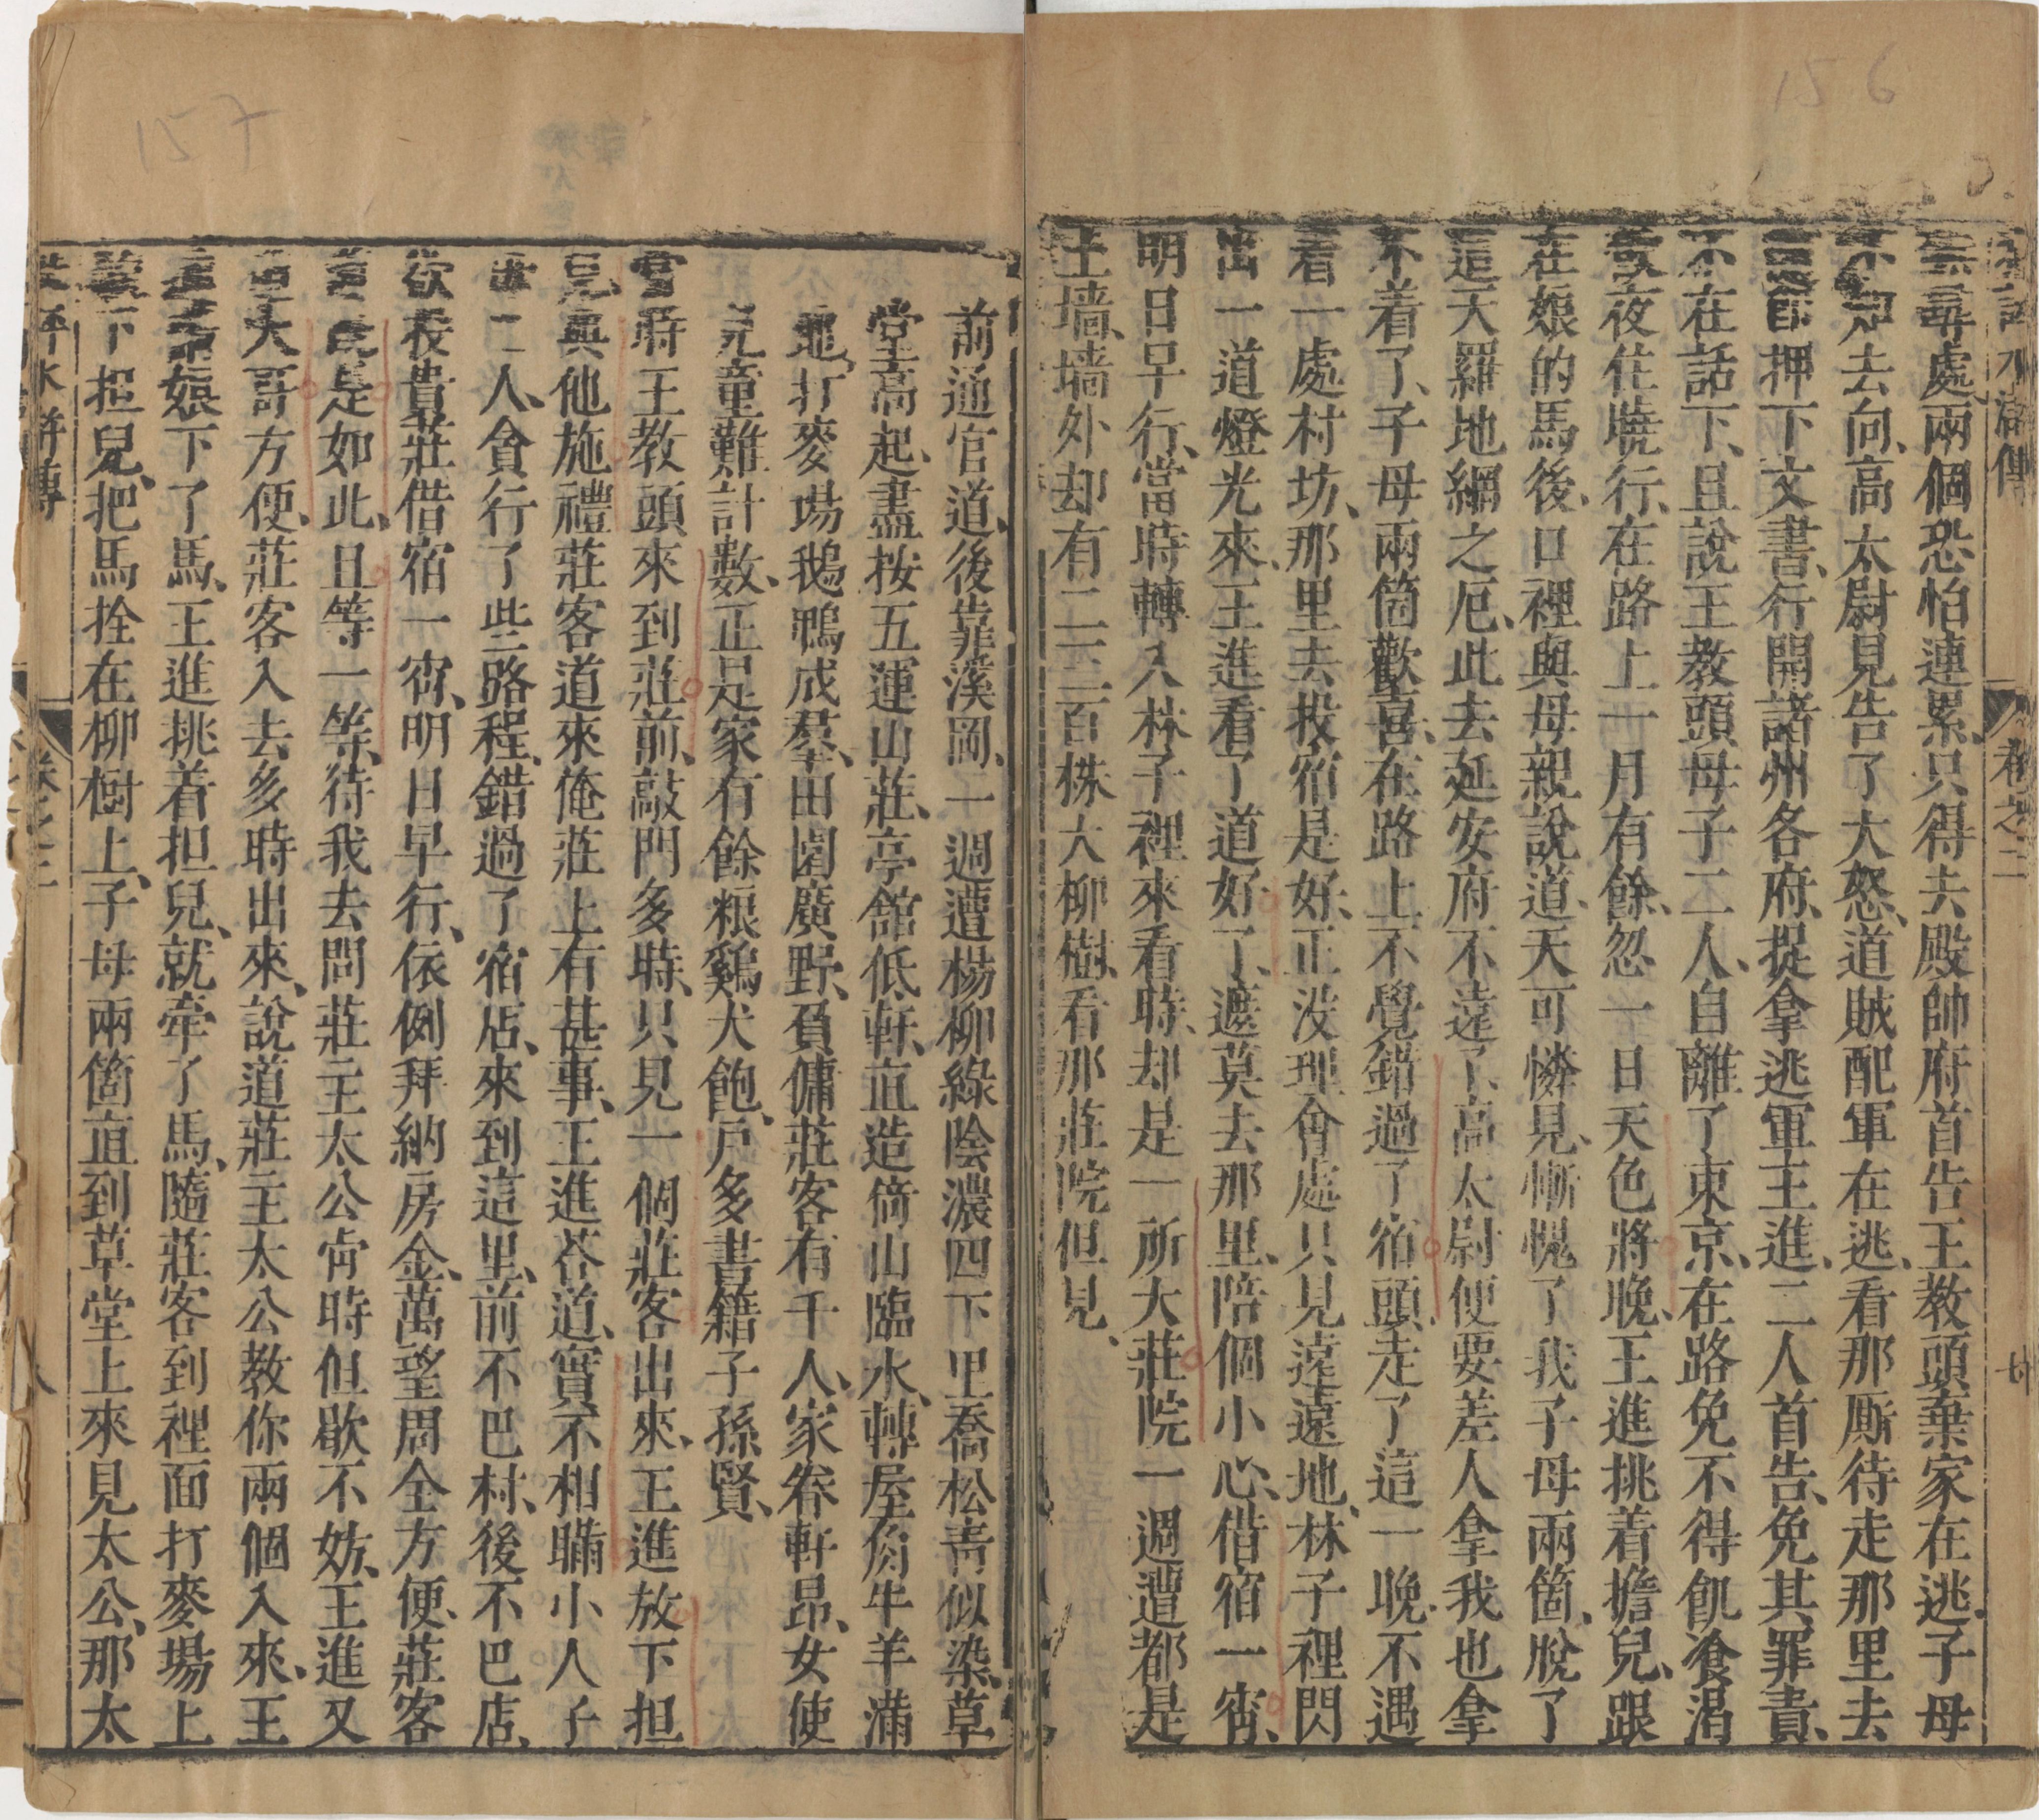 156
水滸傳 卷之二
尋處兩個恐怕連累只得去殿帥府首告王教頭棄家在逃子母
不知去向高太尉見告了大怒道賊配軍在逃看那厮待走那里去
押下文書行開諸州各府捉拿逃軍王進二人首告免其罪責
不在話下且說王教頭母子二人自離了東京在路免不得飢飡渴
夜住曉行在路上一月有餘忽一日天色將晚王進挑着擔兒跟
在娘的馬後口裡與母親說道天可憐見慚愧了我子母兩箇脫了
這天羅地網之厄此去延安府不遠了高太尉便要差人拿我也拿
不着了子母兩箇歡喜在路上不覺錯過了宿頭走了這一晚不遇
着一處村坊那里去投宿是好正没理會處只見遠遠地林子裡閃
出一道燈光來王進看了道好了遮莫去那里陪個小心借宿一宵
明日早行當時轉入林子裡來看時却是一所大莊院一週遭都是
土墻墻外却有二三百株大柳樹看那莊院但見
157
前通官道後靠溪岡一週遭楊柳綠陰濃四下里喬松青似染草
堂高起盡按五運山莊亭舘低軒直造倚山臨水轉屋角牛羊滿
地打麥塲鵝鴨成羣田園廣野負傭莊客有千人家眷軒昂女使
兒童難計數正是家有餘粮鷄犬飽戶多書籍子孫賢
當時王教頭來到莊前敲門多時只見一個莊客出來王進放下担
兒與他施禮莊客道來俺莊上有甚事王進荅道實不相瞞小人子
二人貪行了些路程錯過了宿店來到這里前不巴村後不巴店
欲投貴莊借宿一宵明日早行依例拜納房金萬望周全方便莊客
是如此且等一等待我去問莊主太公肯時但歇不妨王進又
大哥方便莊客入去多時出來說道莊主太公教你兩個入來王
娘下了馬王進挑着担兒就牽了馬隨莊客到裡面打麥場上
下担兒把馬拴在柳樹上子母兩箇直到草堂上來見太公那太
水滸傳 卷之二